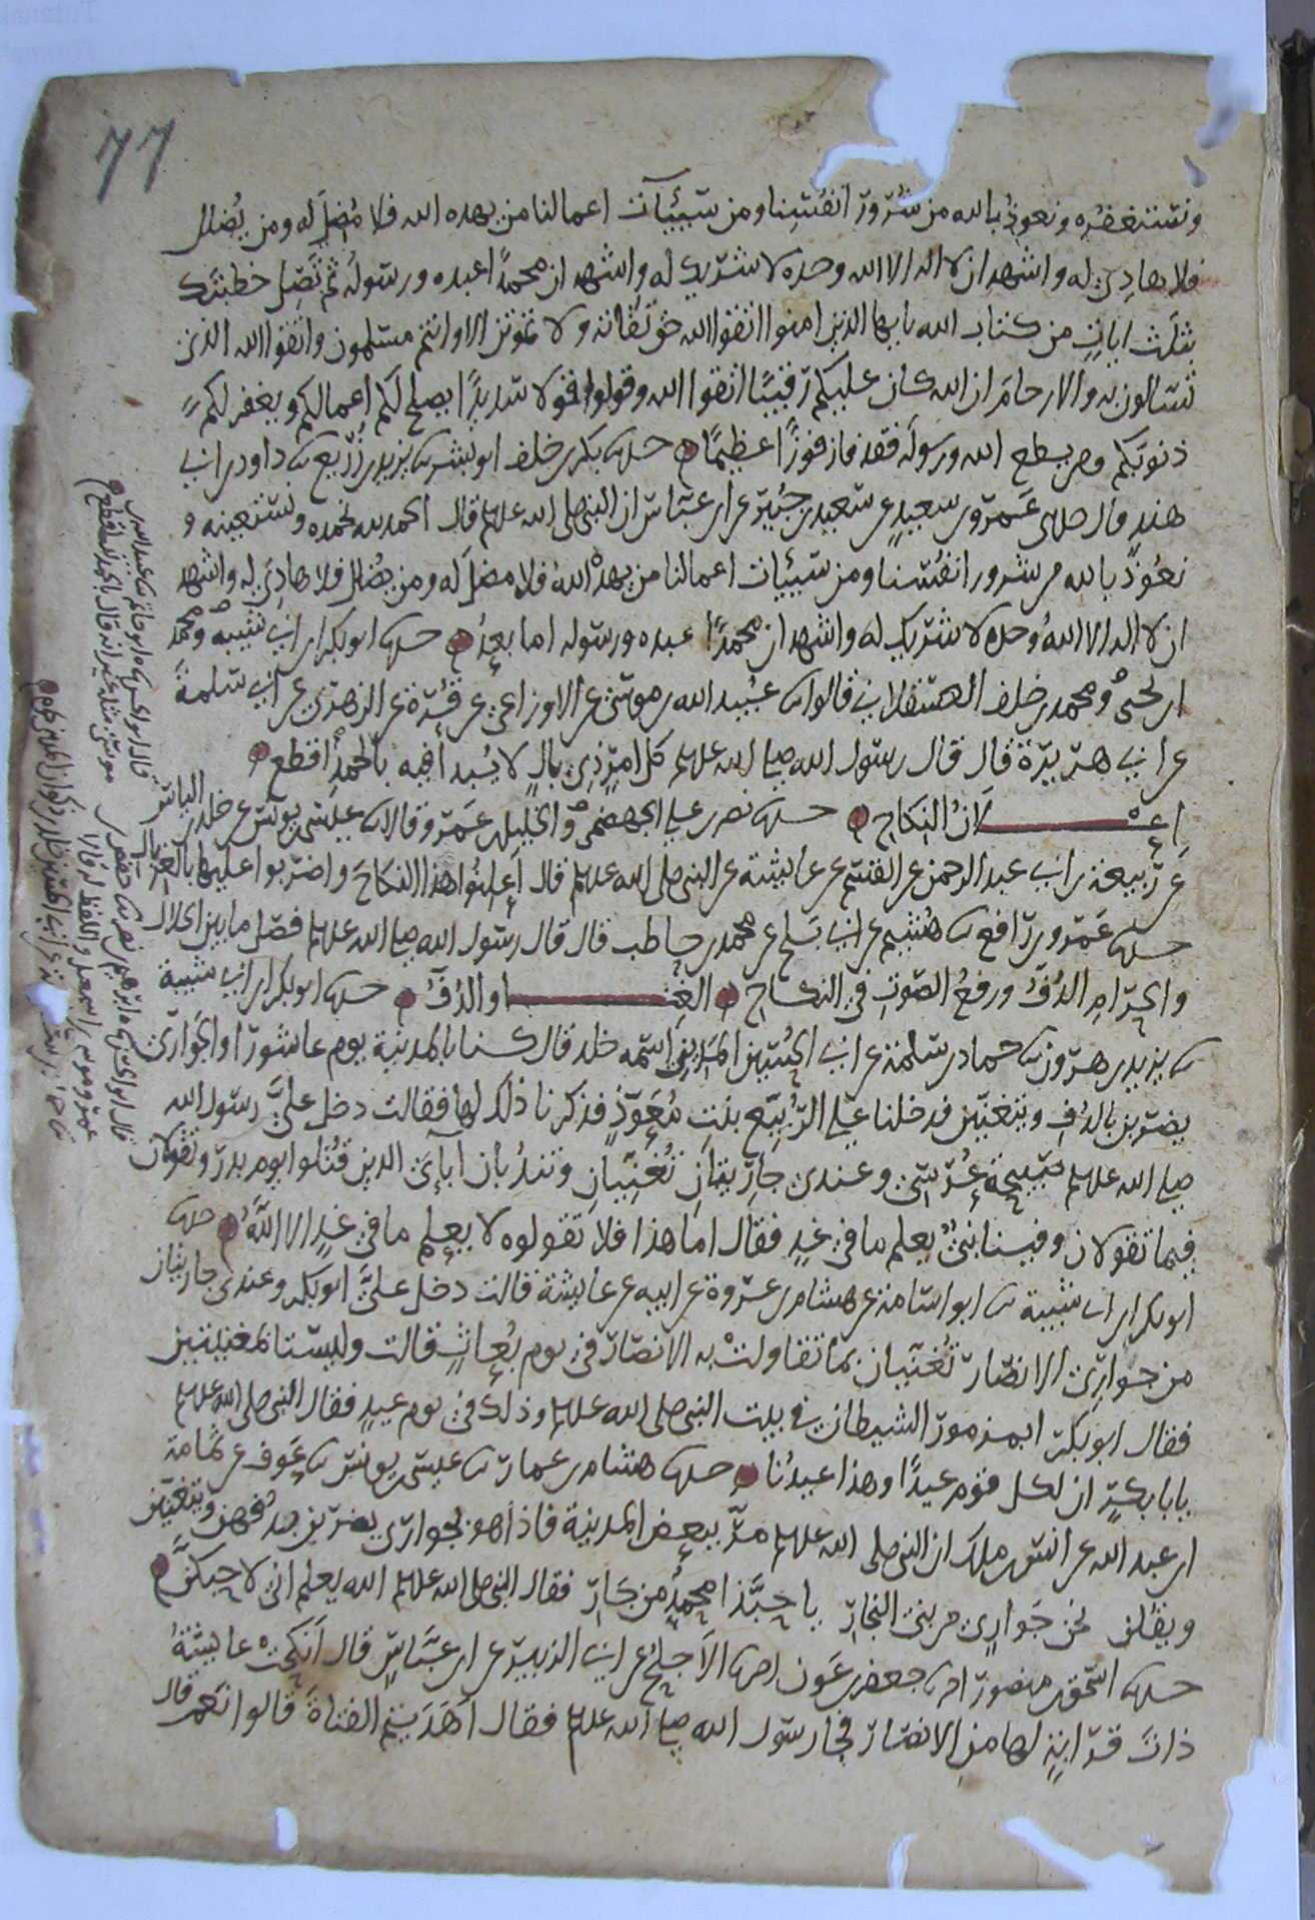 77
ونستغفره ونعوذ بالله من شرور انفسنا ومن سيئآت اعمالنا من يهده الله فلا مضل له ومن يضلل
فلا هادي له واشهد ان لا اله الا الله وحده لا شريك له واشهد ان محمدًا عبده ورسوله ثم تصل خطبتك
بثلث ايات من كتاب الله يايها الذين امنوا اتقوا الله حق تقاته ولا تموتن الا وانتم مسلمون واتقوا الله الذي
تسالون به والارحام ان الله كان عليكم رقيبًا اتقوا الله وقولوا قولا سديدًا يصلح لكم اعمالكم ويغفر لكم
ذنوبكم ومن يطع الله ورسوله فقد فاز فوزًا عظيمًا حدثنا بكر بن خلف ابو بشر ثنا يزيد بن زريع ثنا داود بن ابي
هند قال حدثني عمرو بن سعيد عن سعيد بن جبير عن ابن عباس ان النبي صلى الله عليه وسلم قال الحمد لله نحمده ونستعينه و
نعوذ بالله من شرور انفسنا ومن سيئات اعمالنا من يهده الله فلا مضل له ومن يضلل فلا هادي له واشهد
ان لا اله الا الله وحده لا شريك له واشهد ان محمدًا عبده ورسوله اما بعد حدثنا ابو بكر بن ابي شيبة ومحمد
ابن يحيى ومحمد بن خلف العسقلاني قالوا ثنا عبيد الله بن موسى عن الاوزاعي عن قرة عن الزهري عن ابي سلمة
عن ابي هريرة قال قال رسول الله صلى الله عليه وسلم كل امر ذي بال لا يبدأ فيه بالحمد اقطع
اعلان النكاح حدثنا نصر بن علي الجهضمي والخليل بن عمرو قالا ثنا عيسى بن يونس عن خالد بن الياس
عن ربيعة بن ابي عبد الرحمن عن القسم عن عايشة عن النبي صلى الله عليه وسلم قال أعلنوا هذا النكاح واضربوا عليها بالغربال
حدثنا عمرو بن رافع ثنا هشيم عن ابي بلج عن محمد بن حاطب قال قال رسول الله صلى الله عليه وسلم فصل ما بين الحلال
والحرام الدف ورفع الصوت في النكاح الغناء والدف حدثنا ابو بكر بن ابي شيبة
ثنا يزيد بن هرون ثنا حماد بن سلمة عن ابي الحسين المديني اسمه خلد قال كنا بالمدينة يوم عاشورا والجواري
يضربن بالدف ويتغنين فدخلنا على الربيع بنت معوذ فذكرنا ذلك لها فقالت دخل علي رسول الله
صلى الله عليه وسلم صبيحة عرسي وعندي جاريتان تغنيان وتندبان آبائي الذين قتلوا يوم بدر وتقولان
فيما تقولان وفينا نبي يعلم ما في غد فقال اما هذا فلا تقولوه لا يعلم ما في غد الا الله حدثنا
ابو بكر بن ابي شيبة ثنا ابو اسامة عن هشام بن عروة عن ابيه عن عايشة قالت دخل علي ابو بكر وعندي جاريتان
من جواري الانصار تغنيان بما تقاولت به الانصار في يوم بعاث قالت وليستا بمغنيتين
فقال ابو بكر ابمزمور الشيطان في بيت النبي صلى الله عليه وسلم وذلك في يوم عيد فقال النبي صلى الله عليه وسلم
يا با بكر ان لكل قوم عيدًا وهذا عيدنا حدثنا هشام بن عمار ثنا عيسى بن يونس ثنا عوف عن ثمامة
ابن عبد الله عن انس بن ملك ان النبي صلى الله عليه وسلم مر ببعض المدينة فاذا هو بجواري يضربن بدفهن ويتغنين
ويقلن نحن جواري من بني النجار يا حبذا محمد من جار فقال النبي صلى الله عليه وسلم الله يعلم اني لاحبكن
حدثنا اسحق بن منصور انا جعفر بن عون انا الاجلح عن ابي الزبير عن ابن عباس قال انكحت عايشة
ذات قرابة لها من الانصار فجا رسول الله صلى الله عليه وسلم فقال أهديتم الفتاة قالوا نعم قال